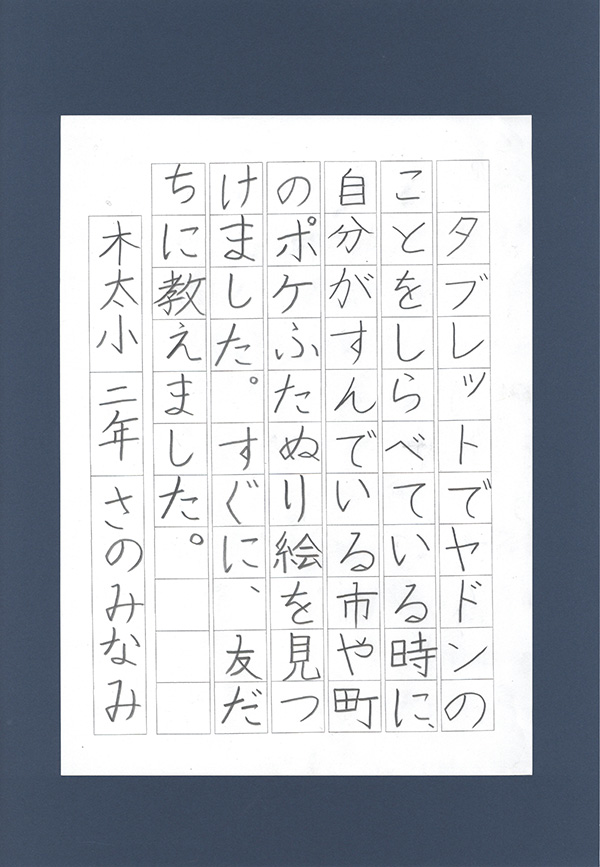 タブレットでヤドンの
ことをしらべている時に、
自分がすんでいる市や町
のポケふたぬり絵を見つ
けました。すぐに、友だ
ちに教えました。
木太小 二年 さのみなみ